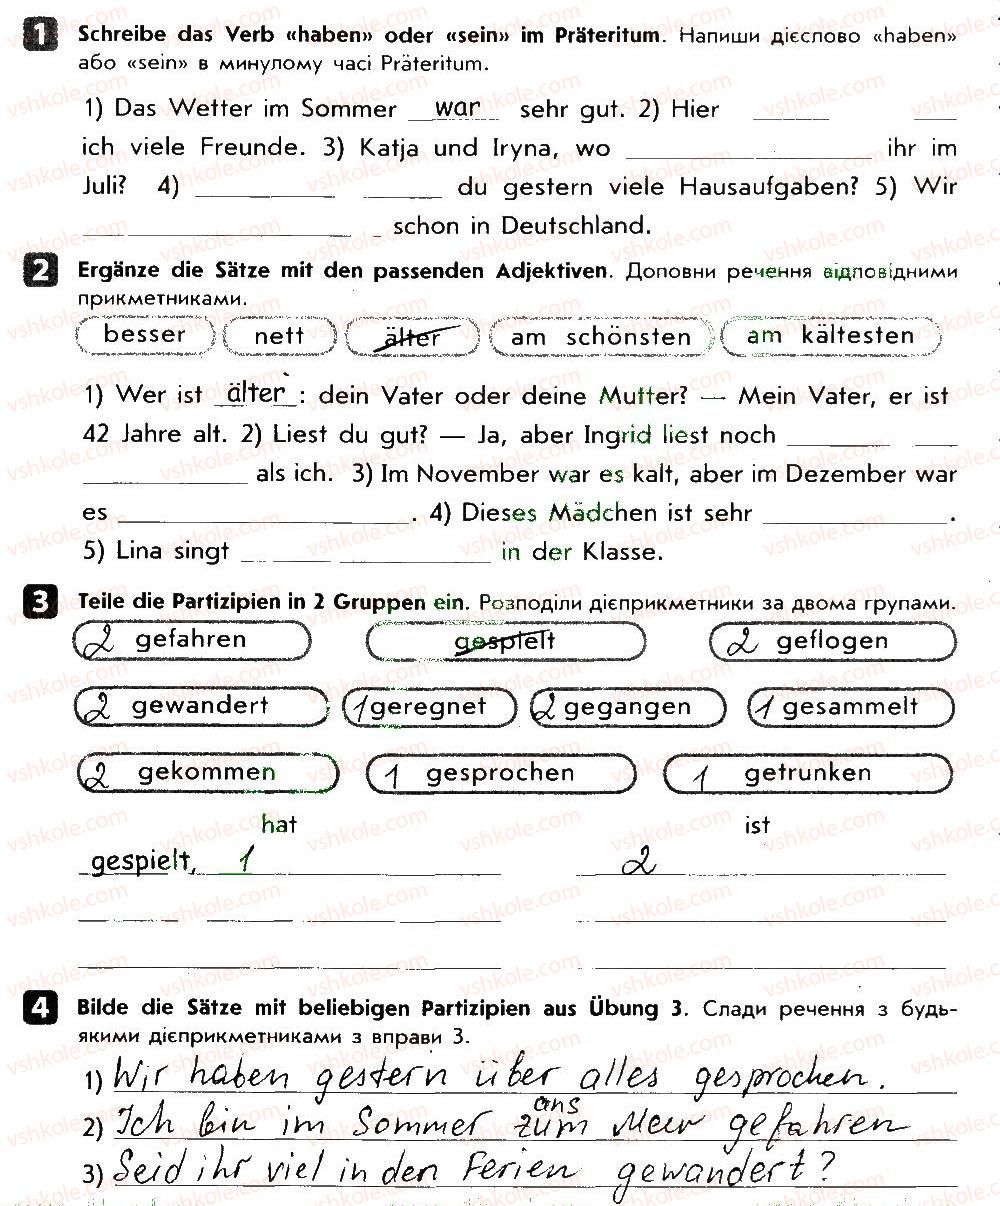 1 Schreibe das Verb «haben» oder «sein» im Präteritum. Напиши дієслово «haben»
або «sein» в минулому часі Präteritum.
1) Das Wetter im Sommer war sehr gut. 2) Hier
ich viele Freunde. 3) Katja und Iryna, wo ihr im
Juli? 4) du gestern viele Hausaufgaben? 5) Wir
schon in Deutschland.
2 Ergänze die Sätze mit den passenden Adjektiven. Доповни речення відповідними
прикметниками.
besser nett älter am schönsten am kältesten
1) Wer ist älter : dein Vater oder deine Mutter? — Mein Vater, er ist
42 Jahre alt. 2) Liest du gut? — Ja, aber Ingrid liest noch
als ich. 3) Im November war es kalt, aber im Dezember war
es . 4) Dieses Mädchen ist sehr .
5) Lina singt in der Klasse.
3 Teile die Partizipien in 2 Gruppen ein. Розподіли дієприкметники за двома групами.
2 gefahren gespielt 2 geflogen
2 gewandert 1 geregnet 2 gegangen 1 gesammelt
2 gekommen 1 gesprochen 1 getrunken
hat ist
gespielt, 1 2
4 Bilde die Sätze mit beliebigen Partizipien aus Übung 3. Слади речення з будь-
якими дієприкметниками з вправи 3.
1) Wir haben gestern über alles gesprochen.
ans
2) Ich bin im Sommer zum Meer gefahren
3) Seid ihr viel in den Ferien gewandert?